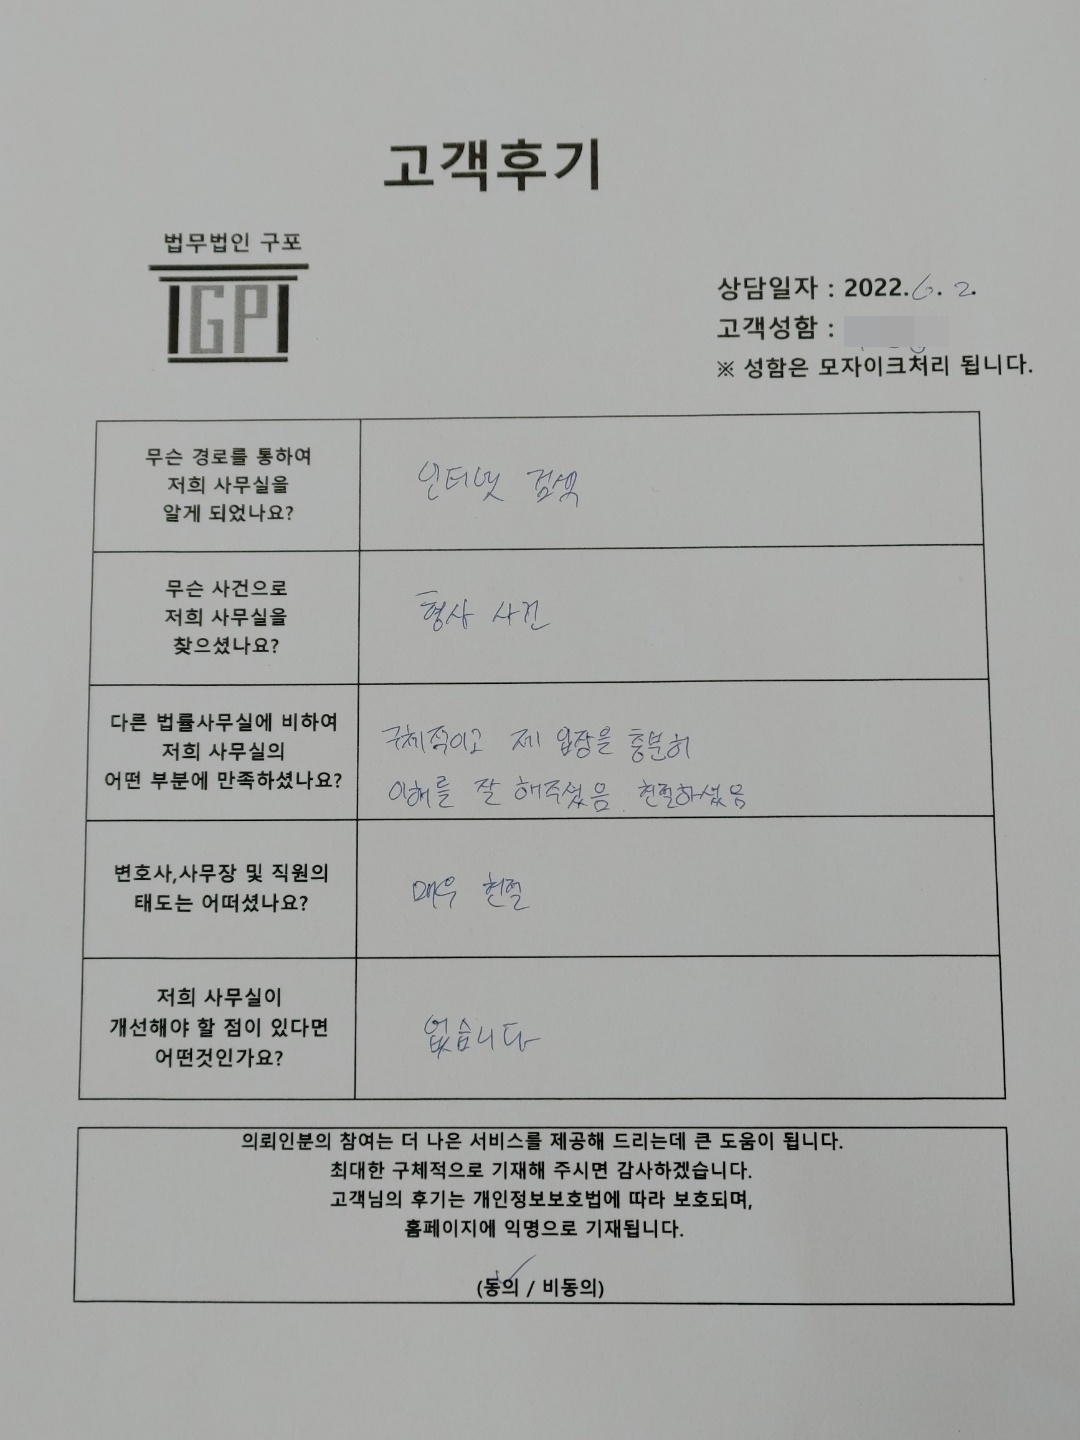 고객후기
법무법인 구포
GP
상담일자 : 2022. 6. 2.
고객성함 :
※ 성함은 모자이크처리 됩니다.
무슨 경로를 통하여
저희 사무실을
알게 되었나요?
인터넷 검색
무슨 사건으로
저희 사무실을
찾으셨나요?
형사 사건
다른 법률사무실에 비하여
저희 사무실의
어떤 부분에 만족하셨나요?
구체적이고 제 입장을 충분히
이해를 잘 해주셨음. 친절하셨음
변호사,사무장 및 직원의
태도는 어떠셨나요?
매우 친절
저희 사무실이
개선해야 할 점이 있다면
어떤것인가요?
없습니다
의뢰인분의 참여는 더 나은 서비스를 제공해 드리는데 큰 도움이 됩니다.
최대한 구체적으로 기재해 주시면 감사하겠습니다.
고객님의 후기는 개인정보보호법에 따라 보호되며,
홈페이지에 익명으로 기재됩니다.
(동의 / 비동의)